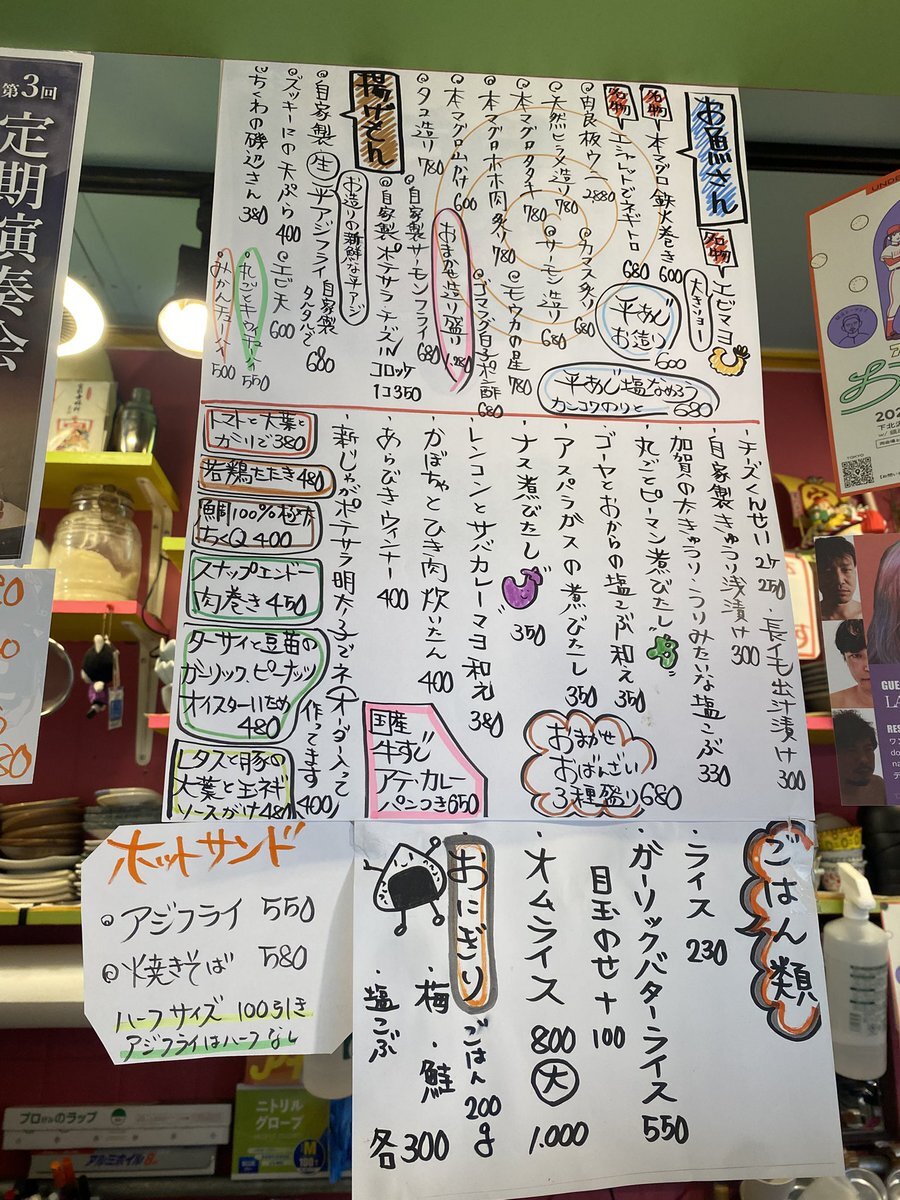 お魚さん
名物 エビマヨ 大きリヨー
名物 本マグロ鉄火巻き 600
名物 エシャレットでネギトロ 680
平あじお造り 600
平あじ塩なめろう カンコクのりと 680
由良板ウニ 2880
カマス炙り 680
天然ヒラメ造り 780
サーモン造り 680
本マグロタタキ 780
モウカの星 780
本マグロホホ肉炙り 780
ゴマフグ白子ポン酢 680
本マグロ山かけ 600
おまかせ造り盛り 1.280
タコ造り 780
揚げさん
自家製サーモンフライ 680
自家製ポテサラチーズIN コロッケ 1コ350
お造りの新鮮な平アジ
自家製生平アジフライ 自家製タルタルで 600
ズッキーニの天ぷら 400
エビ天 600
ちくわの磯辺さん 380
丸ごとキウイチューハイ 550
みかんチューハイ 500
・チーズくんせい 2ケ 250
・長イモ出汁漬け 300
・自家製きゅうり浅漬け 300
・加賀の大きゅうり・うりみたいな塩こぶ 330
・丸ごとピーマン煮びたし
・ゴーヤとおからの塩こぶ和え 350
・アスパラガスの煮びたし 350
・ナス煮びたし 350
おまかせ おばんざい 3種盛り 680
・レンコンとサバカレーマヨ和え 380
・かぼちゃとひき肉炊いたん 400
・あらびきウィンナー 400
国産 牛すじ アテ・カレー パンつき 650
・新じゃがポテサラ明太子でネ(オーダー入って作ってます 400
トマトと大葉と ガーリで 380
若鶏たたき 480
鯛100%極太 ちくQ 400
スナップエンドー 肉巻き 450
ターサイと豆苗の ガーリック、ピーナッツ オイスターいため 480
レタスと豚の 大葉と玉ネギ ソースがけ 480
ごはん類
・ライス 230
・ガーリックバターライス 550
目玉のせ +100
・オムライス 800 大 1.000
おにぎり ごはん200g
・梅 ・鮭 ・塩こぶ 各300
ホットサンド
アジフライ 550
焼きそば 580
ハーフサイズ 100引き
アジフライはハーフなし
第3回
定期演奏会
プロ好みのラップ
アルミホイル
ニトリル
グローブ
M